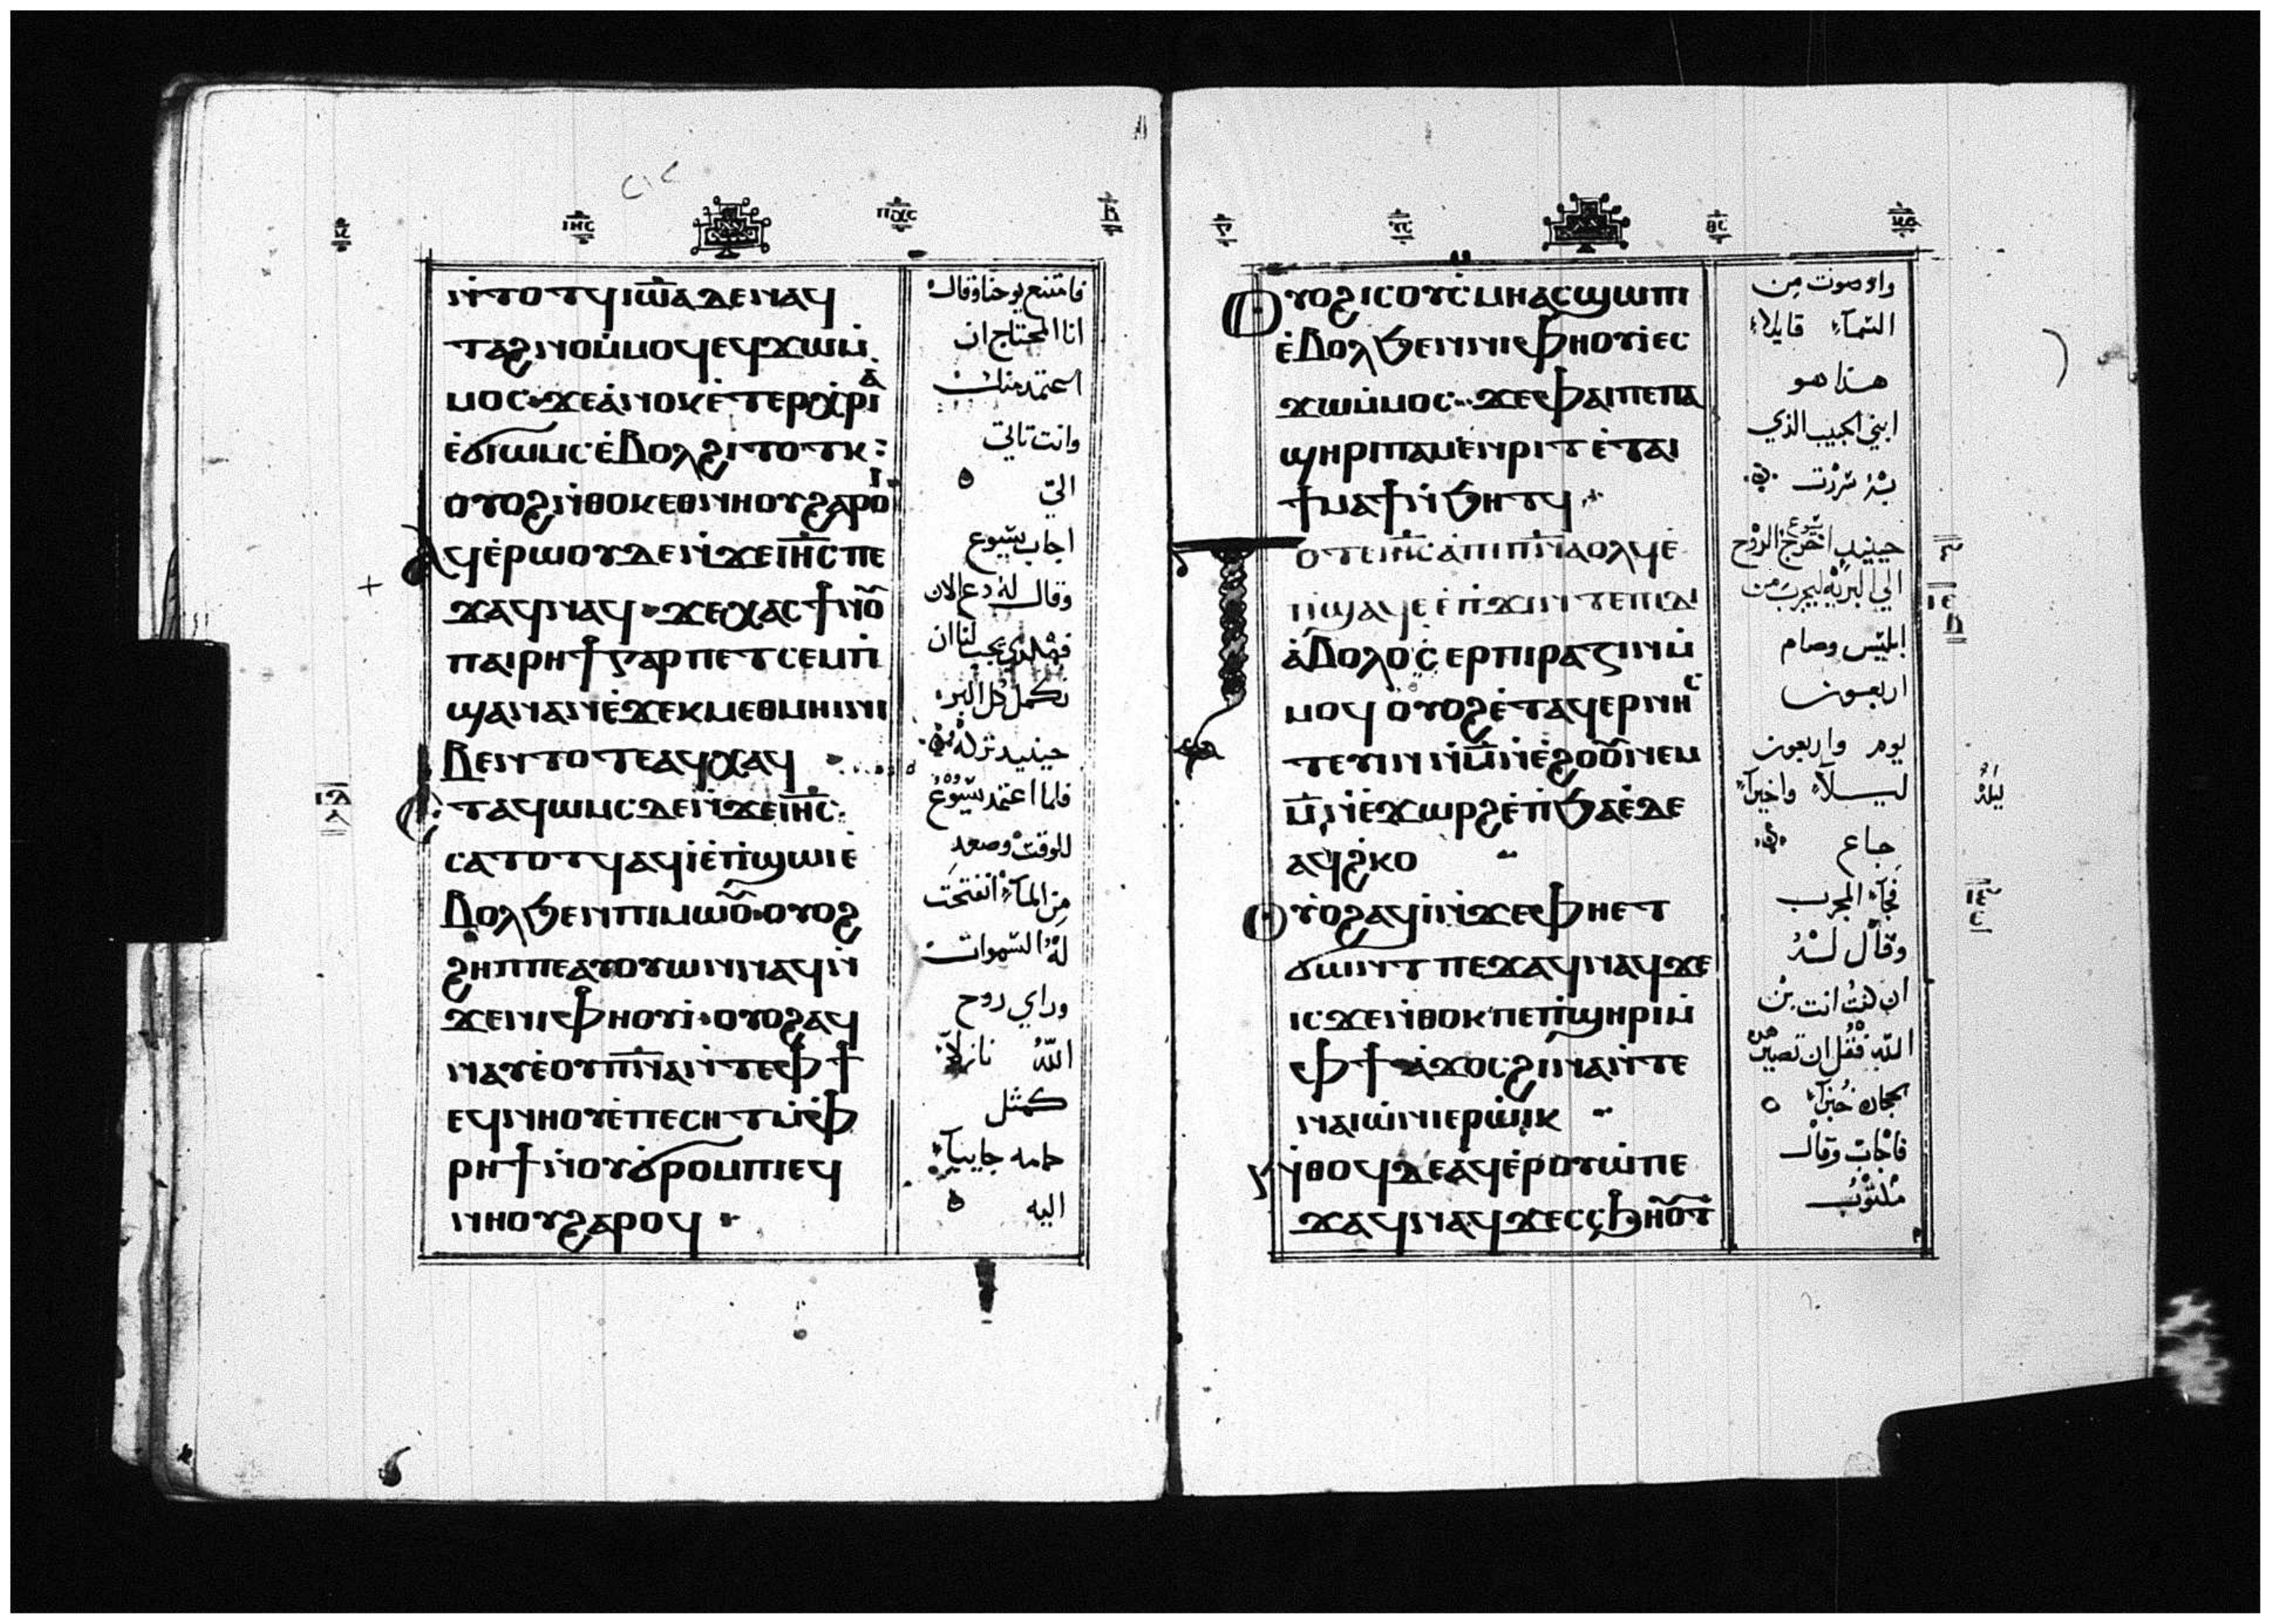 ⲓ̅ⲏ̅ⲥ̅ ⲡ̅ⲭ̅ⲥ̅
ⲛ̀ⲧⲟⲧϥ ⲓⲱ̅ⲁ ⲇⲉ ⲛⲁϥ
ⲧⲁϩⲛⲟ ⲙ̀ⲙⲟϥ ⲉϥϫⲱ ⲙ̀
ⲙⲟⲥ ϫⲉ ⲁ̀ⲛⲟⲕ ⲉ̀ⲧⲉⲣⲭⲣⲓⲁ
ⲉ̀ϭⲓⲱⲙⲥ ⲉ̀ⲃⲟⲗ ϩⲓⲧⲟⲧⲕ:
ⲟⲩⲟϩ ⲛ̀ⲑⲟⲕ ⲉⲑⲛⲏⲟⲩ ϩⲁⲣⲟⲓ
ⲁϥⲉ̀ⲣⲱⲟⲩ ⲇⲉ ⲛ̀ϫⲉ ⲓⲏ̅ⲥ ⲡⲉ
ϫⲁϥ ⲛⲁϥ ϫⲉ ⲭⲁⲥ ϯⲛⲟⲩ
ⲡⲁⲓⲣⲏϯ ⲅⲁⲣ ⲡⲉⲧⲥⲉⲙⲡ̀
ϣⲁ ⲛⲁⲛ ⲉ̀ϫⲉⲕ ⲙⲉⲑⲙⲏⲓ ⲛⲓ
ⲃⲉⲛ ⲧⲟⲧⲉ ⲁϥⲭⲁϥ
ⲉⲧⲁϥⲱⲙⲥ ⲇⲉ ⲛ̀ϫⲉ ⲓⲏ̅ⲥ
ⲥⲁⲧⲟⲧϥ ⲁϥⲓ̀ ⲉ̀ⲡ̀ϣⲱⲓ ⲉ̀
ⲃⲟⲗ ϧⲉⲛ ⲡⲓⲙⲱⲟⲩ ⲟⲩⲟϩ
ϩⲏⲡⲡⲉ ⲁⲩⲟⲩⲱⲛ ⲛⲁϥ ⲛ̀
ϫⲉ ⲛⲓⲫⲏⲟⲩⲓ̀ ⲟⲩⲟϩ ⲁϥ
ⲛⲁⲩ ⲉ̀ⲟⲩⲡ̅ⲛ̅ⲁ ⲛ̀ⲧⲉ ⲫϯ
ⲉϥⲛⲏⲟⲩ ⲉ̀ⲡⲉⲥⲏⲧ ⲙ̀ⲫ̀
ⲣⲏϯ ⲛ̀ⲟⲩϭⲣⲟⲙⲡⲓ ⲉϥ
ⲛⲏⲟⲩ ϩⲁⲣⲟϥ
فامتنع يوحنا وقال
انا المحتاج ان
اعتمد منك
وانت تاتي
الي
اجاب يسوع
وقال له دع الان
فهكذي يجب لنا ان
نكمل كل البر
حينيد تركه
فلما اعتمد يسوع
للوقت وصعد
من الماء انفتحت
له السموات
وراي روح
الله نازلا
كمثل
حمامه جاييا
اليه
ⲩ̅ⲥ̅ ⲑ̅ⲥ̅
ⲟⲩⲟϩ ⲓⲥ ⲟⲩⲥ̀ⲙⲏ ⲁⲥϣⲱⲡⲓ
ⲉ̀ⲃⲟⲗ ϧⲉⲛ ⲛⲓⲫⲏⲟⲩⲓ̀ ⲉⲥ
ϫⲱ ⲙ̀ⲙⲟⲥ ϫⲉ ⲫⲁⲓ ⲡⲉ ⲡⲁ
ϣⲏⲣⲓ ⲡⲁⲙⲉⲛⲣⲓⲧ ⲉ̀ⲧⲁⲓ
ϯⲙⲁϯ ⲛ̀ϧⲏⲧϥ
ⲧⲟⲧⲉ ⲓⲏ̅ⲥ ⲁ̀ ⲡⲓⲡ̅ⲛ̅ⲁ ⲟⲗϥ ⲉ̀
ⲡ̀ϣⲁϥⲉ ⲉ̀ⲡ̀ϫⲓⲛⲧⲉ ⲡⲓⲇⲓ
ⲁ̀ⲃⲟⲗⲟⲥ ⲉⲣⲡⲓⲣⲁⲍⲓⲛ ⲙ̀
ⲙⲟϥ ⲟⲩⲟϩ ⲉ̀ⲧⲁϥⲉⲣⲛⲏⲥ
ⲧⲉⲩⲓⲛ ⲛ̀ⲙ̅ ⲛ̀ⲉ̀ϩⲟⲟⲩ ⲛⲉⲙ
ⲙ̅ ⲛ̀ⲉ̀ϫⲱⲣϩ ⲉ̀ⲡ̀ϧⲁⲉ̀ ⲇⲉ
ⲁϥϩ̀ⲕⲟ
ⲟⲩⲟϩ ⲁϥⲓ̀ ⲛ̀ϫⲉ ⲫⲏⲉⲧ
ϭⲱⲛⲧ ⲡⲉϫⲁϥ ⲛⲁϥ ϫⲉ
ⲓⲥϫⲉ ⲛ̀ⲑⲟⲕ ⲡⲉ ⲡ̀ϣⲏⲣⲓ ⲙ̀
ⲫϯ ⲁ̀ϫⲟⲥ ϩⲓⲛⲁ ⲛ̀ⲧⲉ
ⲛⲁⲓⲱ̀ⲛⲓ ⲉⲣⲱ̀ⲓⲕ
ⲛ̀ⲑⲟϥ ⲇⲉ ⲁϥⲉ̀ⲣⲟⲩⲱ̀ ⲡⲉ
ϫⲁϥ ⲛⲁϥ ϫⲉ ⲥⲥϧⲏⲟⲩⲧ
واو صوت من
السماء قايلا
هذا هو
ابني الحبيب الذي
به سررت
حينيد اخرج يسوع الروح
الي البريه ليجرب من
ابليس وصام
اربعون
يوم واربعون
ليلا واخيرا
ليله
جاع
فجاء المجرب
وقال له
ان كنت انت بن
الله فقل ان تصير هذه
الحجاره خبزا
فاجاب وقال
مكتوب